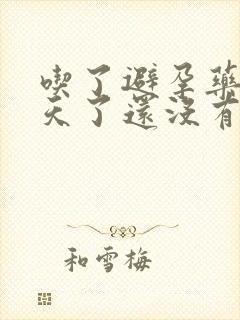 喫了避孕藥
天了還沒有
和雪梅